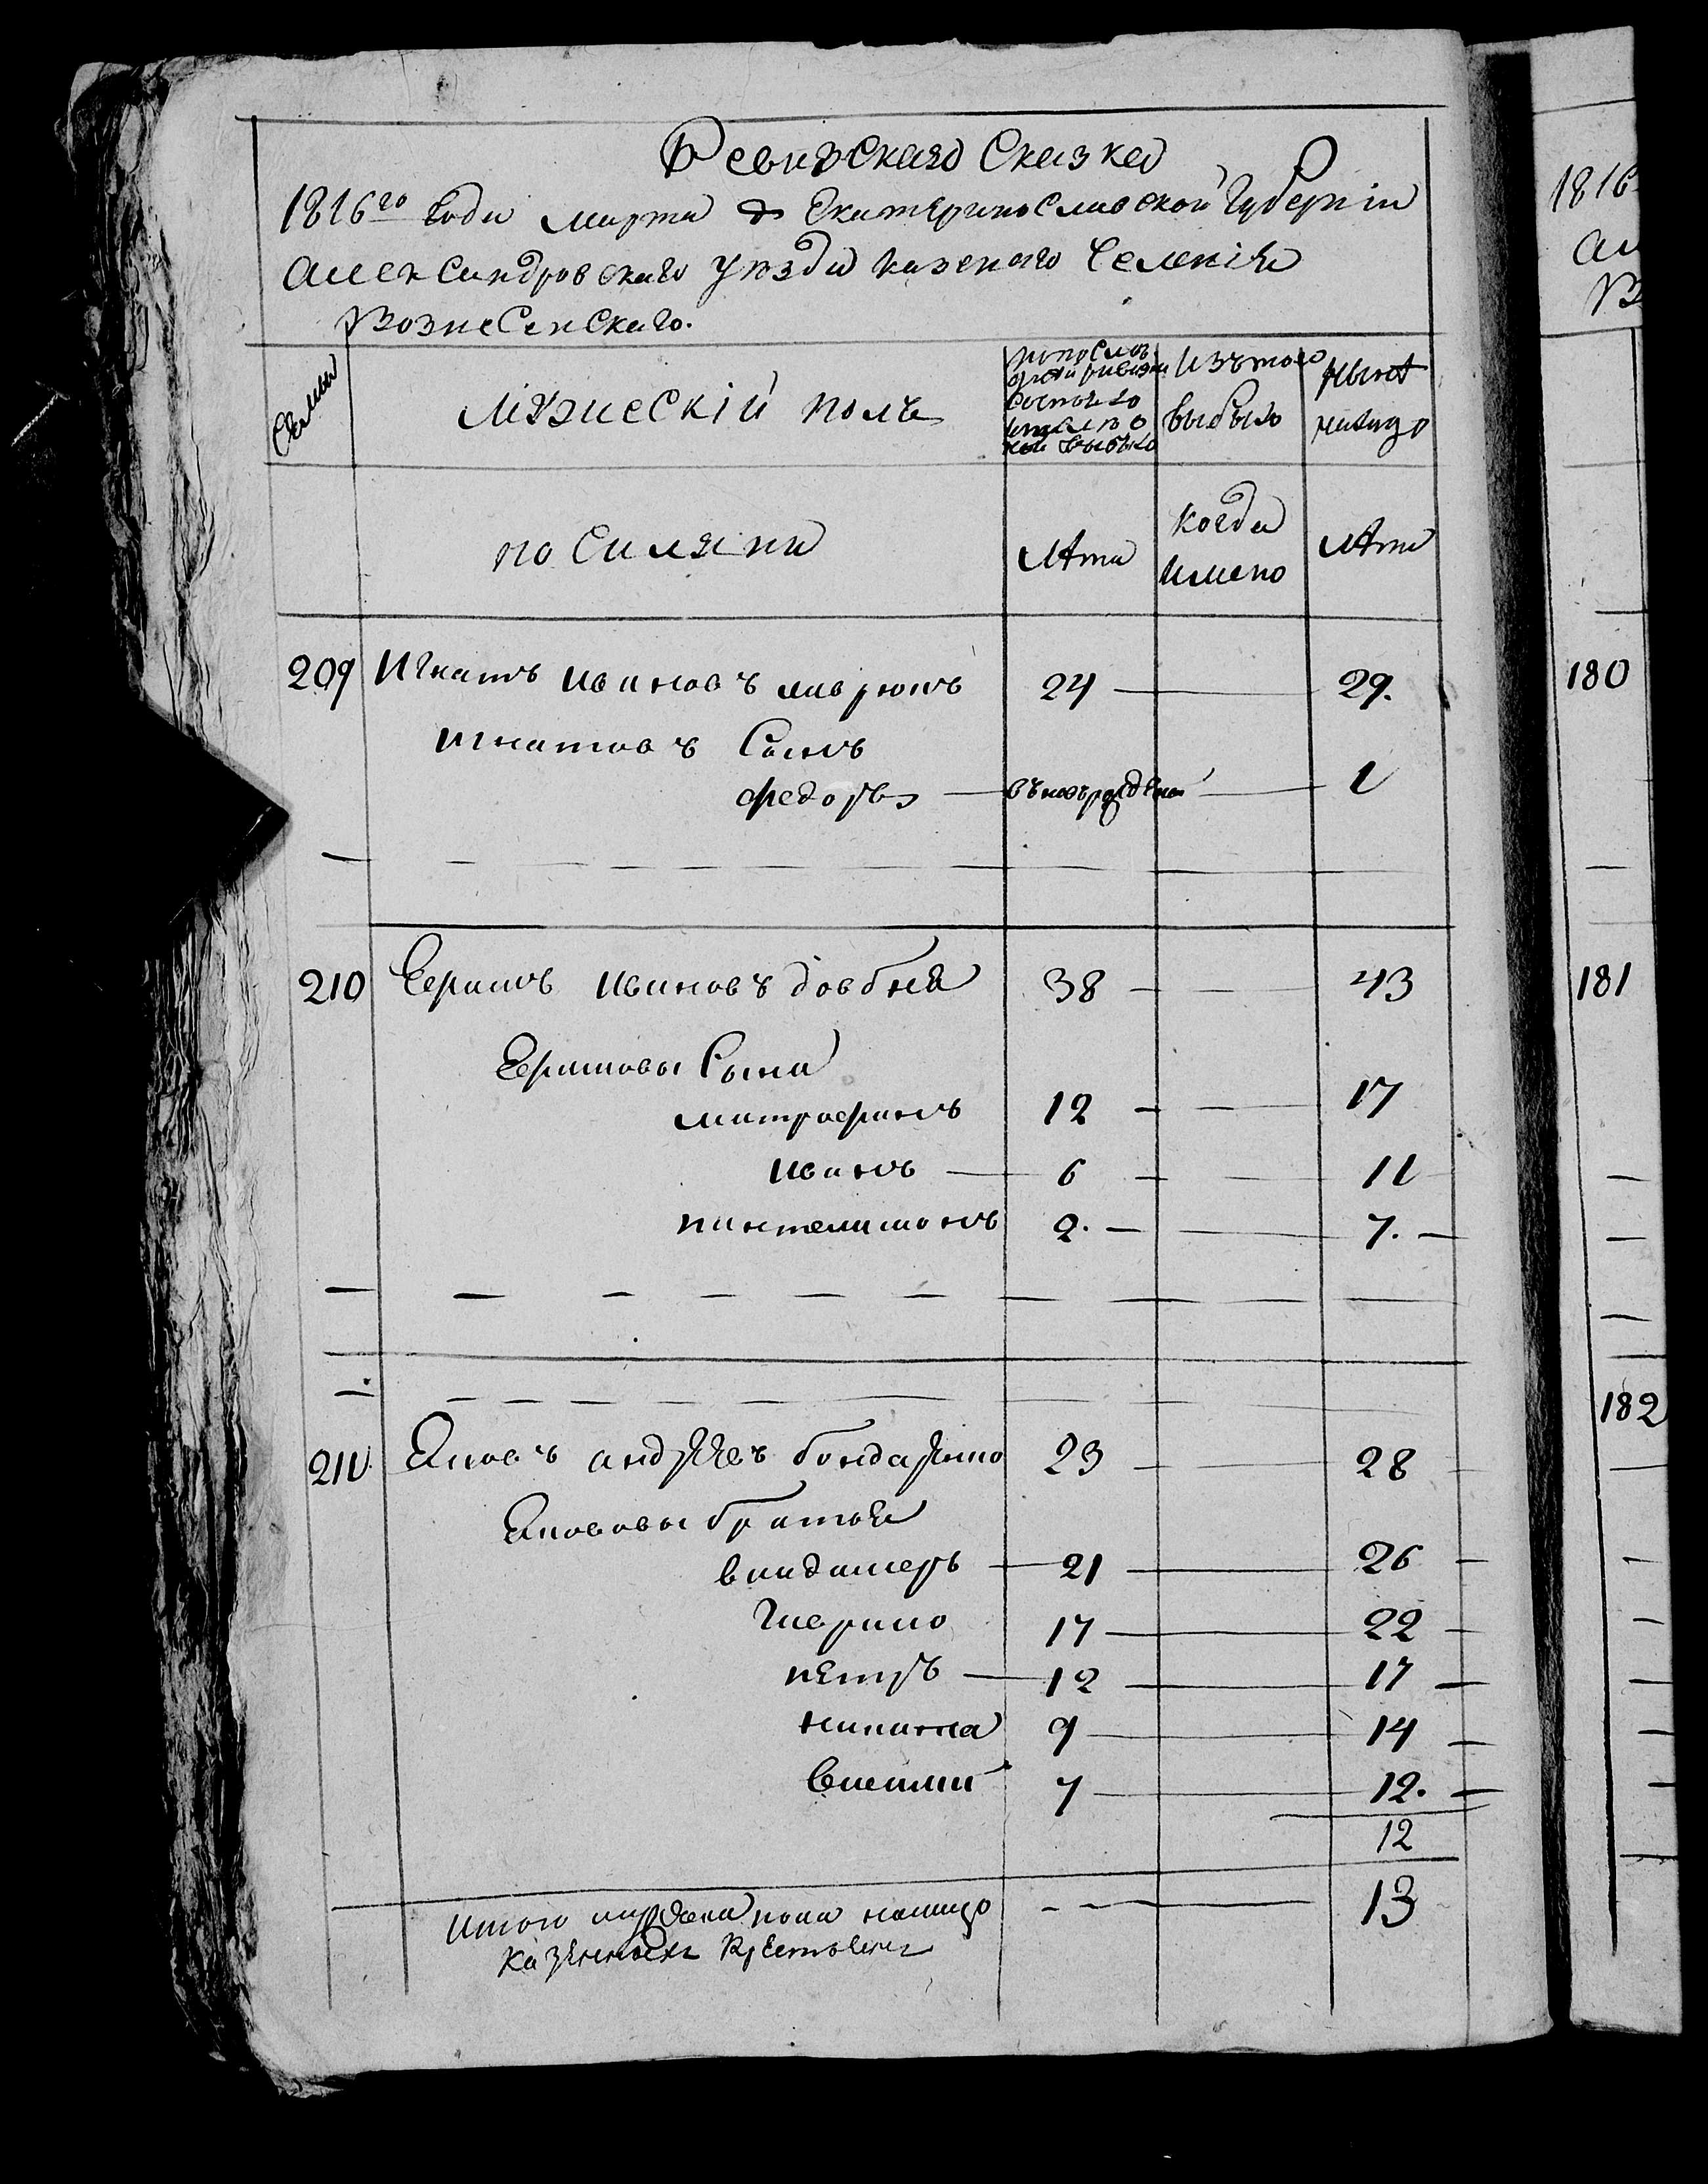 Ревизская Сказка
1816го Года марта Екатеринославской Губерніи
александровскаго уезда казеного Селенія
Вознесенскаго.
Семьи
Мужескій полъ
по последней ревизіи состояло и после оной выбыло
Изъ того выбыло
ныне налицо
поселяни
лета
когда имено
лета
209 Игнатъ Ивановъ лаврюкъ 24 29.
Игнатовъ Сынъ
федоръ въновъ рожденой 1
210 Ефимъ Ивановъ довбня 38 43
Ефимовы Сына
митрофанъ 12 17
Иванъ 6 11
пантелимонъ 2. 7.
211 Яковъ андреевъ бондаренко 23 28
Якововы братья
владимеръ 21 26
Гаврило 17 22
петръ 12 17
никита 9 14
василий 7 12.
12
Итого мужеска пола налицо 13
Казенныхъ крестьянъ
1816
ал
В
180
181
182